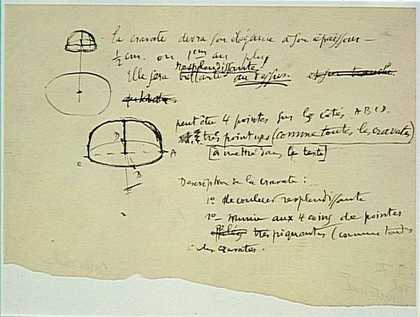 La cravate devra son élégance à son épaisseur —
1/2 cm. ou 1 cm au plus
resplendissante
Elle sera brillante au dessus.
peut être 4 pointes sur les côtés A B C D.
très pointues (comme toutes les cravates)
[à mettre dans le texte]
B
A
C
D
Description de la cravate :
1º de couleur resplendissante
2º munie aux 4 coins de pointes
très piquantes (comme toutes
les cravates.